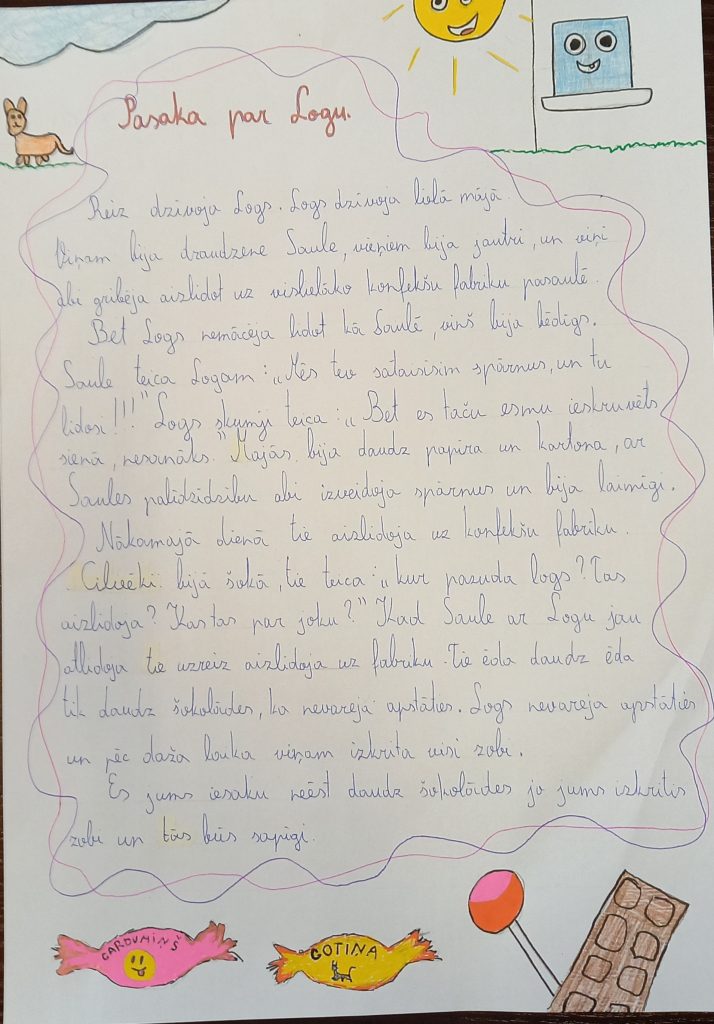 Pasaka par Logu.
Reiz dzīvoja Logs. Logs dzīvoja lielā mājā.
Viņam bija draudzene Saule, viņiem bija jautri, un viņi
abi gribēja aizlidot uz vislielāko konfekšu fabriku pasaulē.
Bet Logs nemācēja lidot kā Saulē, viņš bija bēdīgs.
Saule teica Logam: „Mēs tev sataisīsim spārnus, un tu
lidosi!!!" Logs skumji teica: „Bet es taču esmu ieskruvēts
sienā, nesanāks." Mājās bija daudz papīra un kartona, ar
Saules palīdzīdzību abi izveidoja spārnus un bija laimīgi.
Nākamajā dienā tie aizlidoja uz konfekšu fabriku.
Cilvēki bijā šokā, tie teica: „kur pazuda logs? Tas
aizlidoja? Kas tas par joku?" Kad Saule ar Logu jau
atlidoja tie uzreiz aizlidoja uz fabriku. Tie ēda daudz ēda
tik daudz šokolādes, ka nevarēja apstāties. Logs nevarēja apstāties
un pēc daža lauka viņam izkrita visi zobi.
Es jums iesaku neēst daudz šokolādes jo jums izkritīs
zobi un tās būs sāpīgi.
GARDUMIŅŠ
GOTIŅA